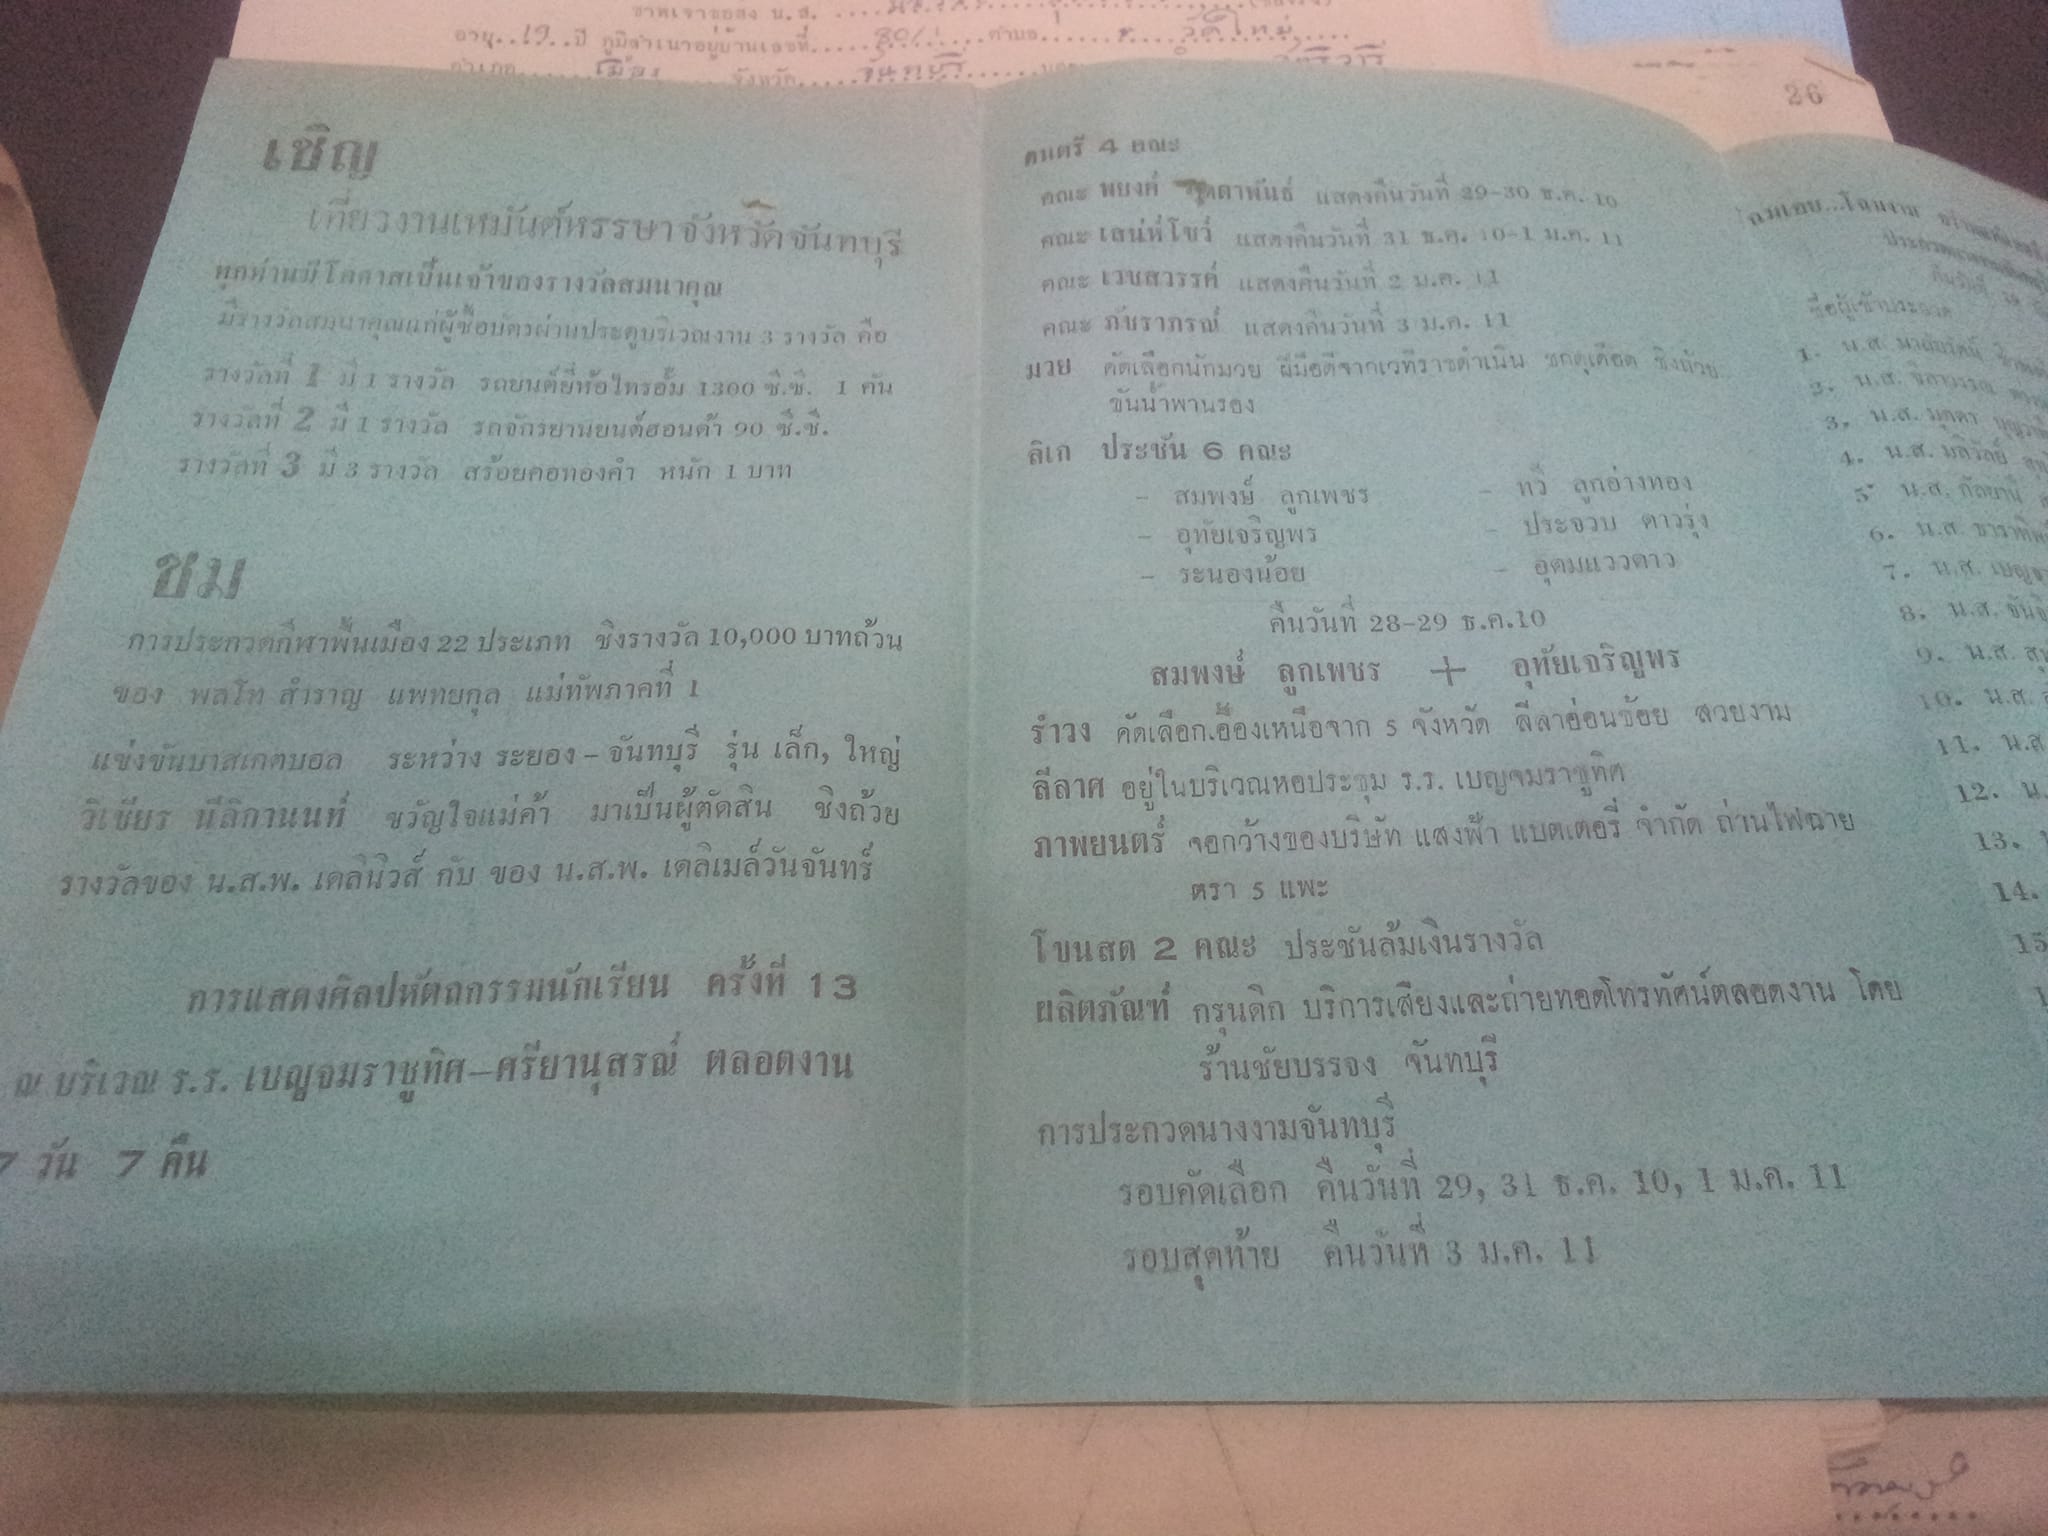 อายุ..19..ปี ภูมิลำเนาอยู่บ้านเลขที่ 80/ ตำบล วัดใหม่
อำเภอ เมือง จังหวัด จันทบุรี
26
เชิญ
เที่ยวงานเหมันต์หรรษาจังหวัดจันทบุรี
ทุกท่านมีโอกาสเป็นเจ้าของรางวัลสมนาคุณ
มีรางวัลสมนาคุณแก่ผู้ซื้อบัตรผ่านประตูบริเวณงาน 3 รางวัล คือ
รางวัลที่ 1 มี 1 รางวัล รถยนต์ยี่ห้อไทรอั้ม 1300 ซี.ซี. 1 คัน
รางวัลที่ 2 มี 1 รางวัล รถจักรยานยนต์ฮอนด้า 90 ซี.ซี.
รางวัลที่ 3 มี 3 รางวัล สร้อยคอทองคำ หนัก 1 บาท
ชม
การประกวดกีฬาพื้นเมือง 22 ประเภท ชิงรางวัล 10,000 บาทถ้วน
ของ พลโท สำราญ แพทยกุล แม่ทัพภาคที่ 1
แข่งขันบาสเกตบอล ระหว่าง ระยอง – จันทบุรี รุ่น เล็ก, ใหญ่
วิเชียร นีลิกานนท์ ขวัญใจแม่ค้า มาเป็นผู้ตัดสิน ชิงถ้วย
รางวัลของ น.ส.พ. เดลินิวส์ กับ ของ น.ส.พ. เดลิเมล์วันจันทร์
การแสดงศิลปหัตถกรรมนักเรียน ครั้งที่ 13
ณ บริเวณ ร.ร. เบญจมราชูทิศ–ศรียานุสรณ์ ตลอดงาน
7 วัน 7 คืน
ดนตรี 4 คณะ
คณะ พยงค์ มุกดาพันธ์ แสดงคืนวันที่ 29-30 ธ.ค. 10
คณะ เสน่ห์โชว์ แสดงคืนวันที่ 31 ธ.ค. 10-1 ม.ค. 11
คณะ เวชสวรรค์ แสดงคืนวันที่ 2 ม.ค. 11
คณะ ภัชราภรณ์ แสดงคืนวันที่ 3 ม.ค. 11
มวย คัดเลือกนักมวย ฝีมือดีจากเวทีราชดำเนิน ชกดุเดือด ชิงถ้วย
ขันน้ำพานรอง
ลิเก ประชัน 6 คณะ
– สมพงษ์ ลูกเพชร – ทวี ลูกอ่างทอง
– อุทัยเจริญพร – ประจวบ ดาวรุ่ง
– ระนองน้อย – อุดมแววดาว
คืนวันที่ 28-29 ธ.ค.10
สมพงษ์ ลูกเพชร + อุทัยเจริญพร
รำวง คัดเลือก.อ๊องเหนือจาก 5 จังหวัด ลีลาอ่อนช้อย สวยงาม
ลีลาศ อยู่ในบริเวณหอประชุม ร.ร. เบญจมราชูทิศ
ภาพยนตร์ จอกว้างของบริษัท แสงฟ้า แบตเตอรี่ จำกัด ถ่านไฟฉาย
ตรา 5 แพะ
โขนสด 2 คณะ ประชันล้มเงินรางวัล
ผลิตภัณฑ์ กรุนดิก บริการเสียงและถ่ายทอดโทรทัศน์ตลอดงาน โดย
ร้านชัยบรรจง จันทบุรี
การประกวดนางงามจันทบุรี
รอบคัดเลือก คืนวันที่ 29, 31 ธ.ค. 10, 1 ม.ค. 11
รอบสุดท้าย คืนวันที่ 3 ม.ค. 11
ชื่อผู้เข้าประกวด
1. น.ส. มาลัยรัตน์
2. น.ส. จิลาวรรณ
3. น.ส. มุกดา
4. น.ส. มลิวัลย์
5 น.ส. กัลยาณี
6. น.ส.
7. น.ส.
8. น.ส.
9. น.ส.
10. น.ส.
11. น.ส
12. น.
13.
14.
15
1